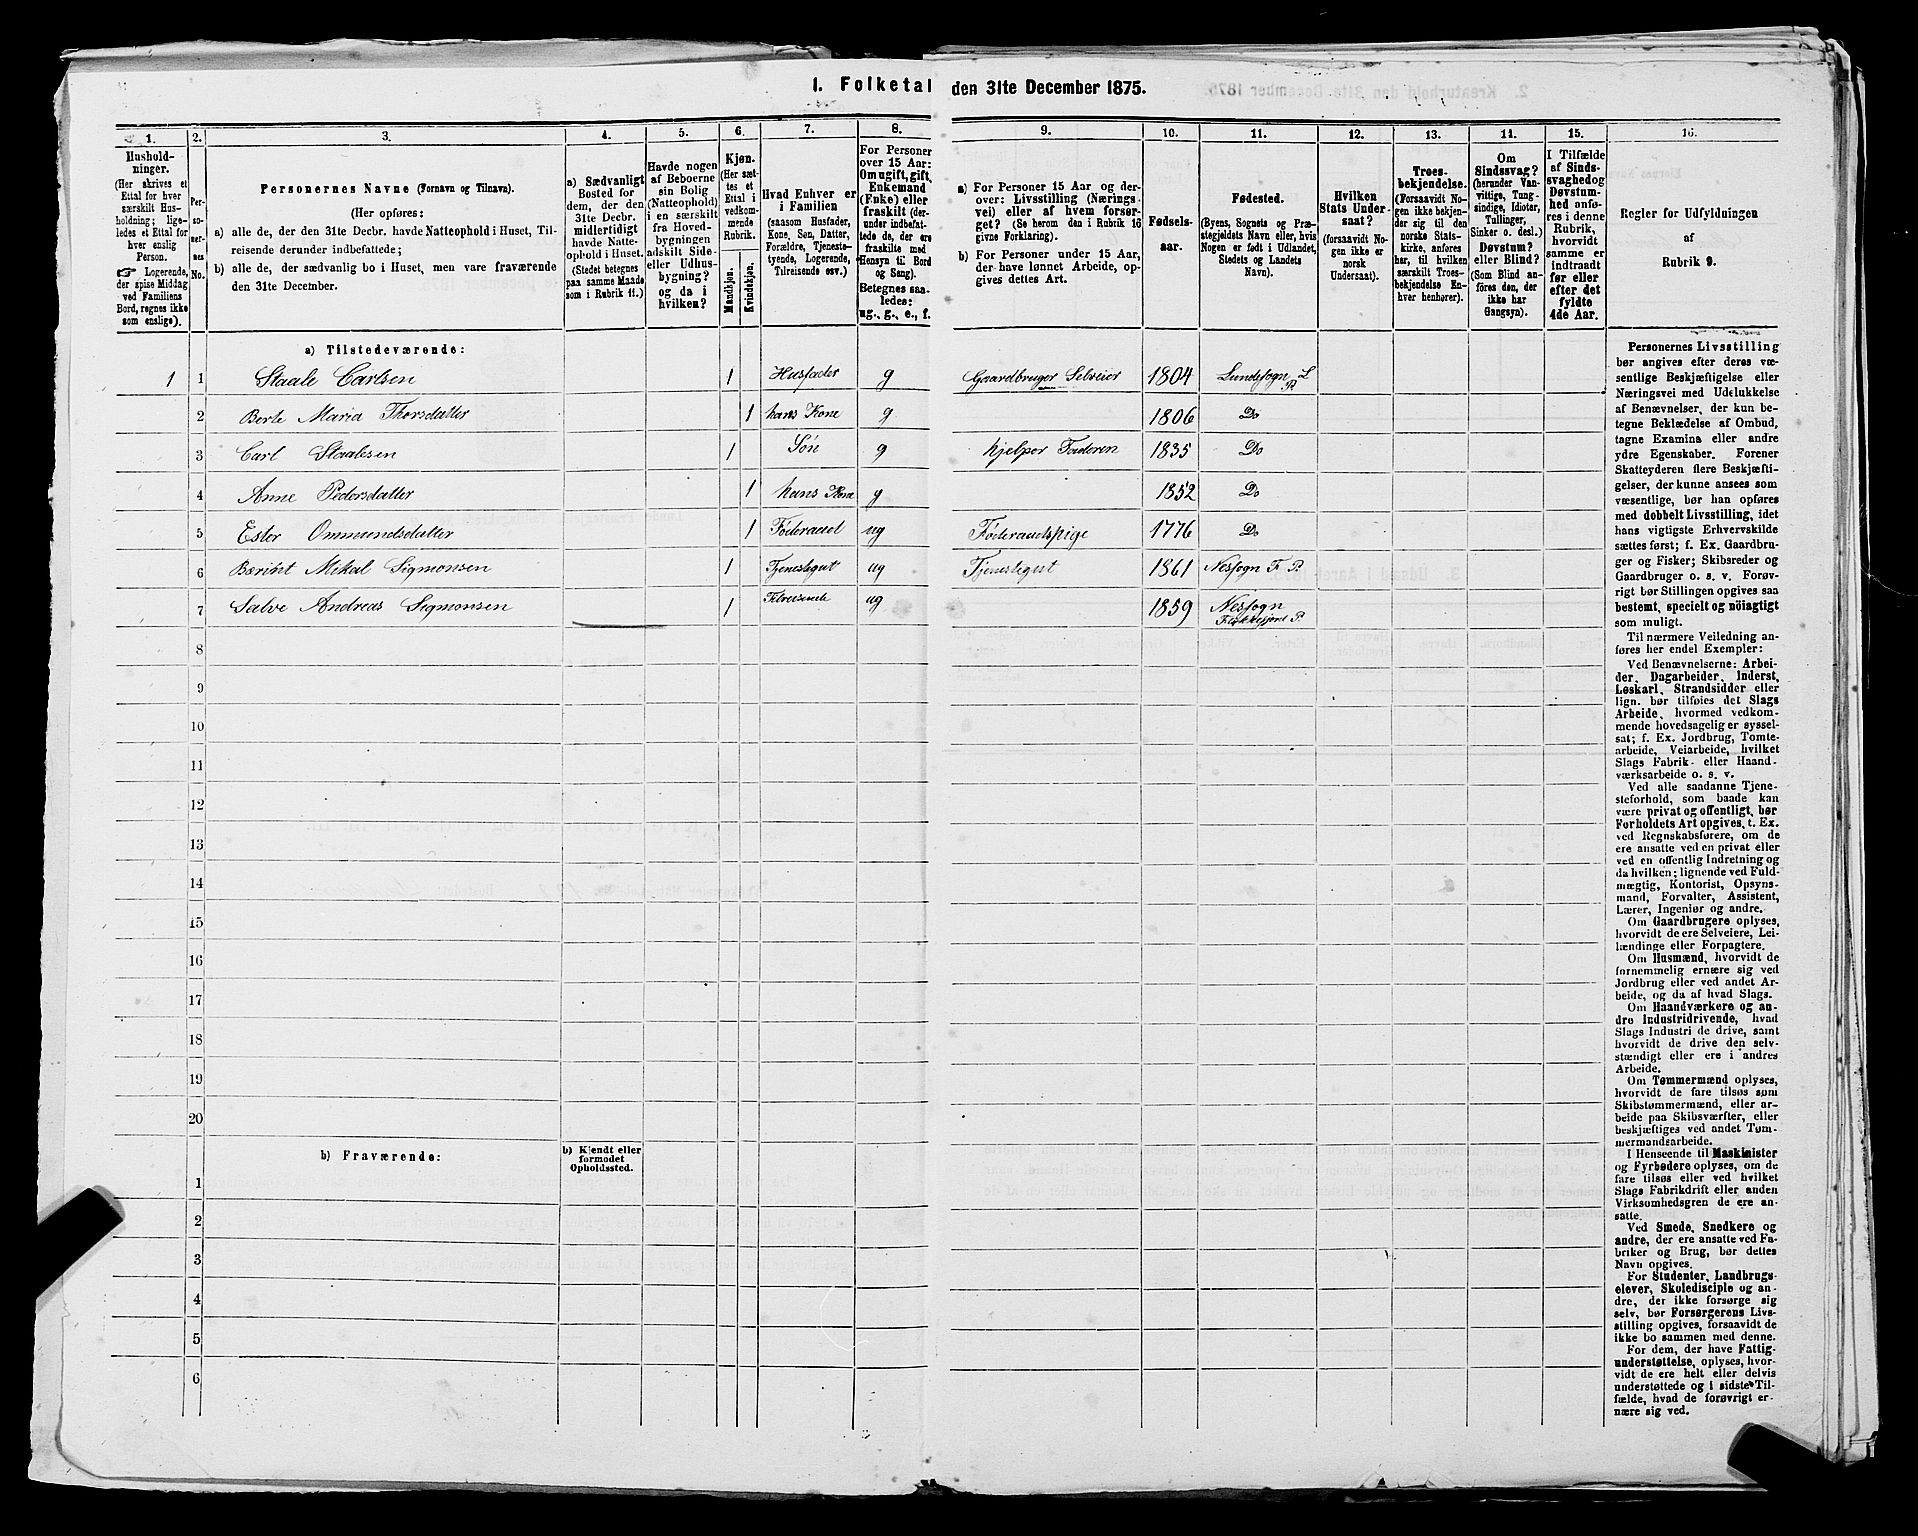 1. Folketal den 31te December 1875.
1. 2. 3. 4. 5. 6. 7. 8. 9. 10. 11. 12. 13. 14. 15. 16.
Hushold-
ninger.
(Her skrives et
Ettal for hver
særskilt Hus-
holdning; lige-
ledes et Ettal for
hver enslig
Person.
☞ Logerende,
der spise Middag
ved Familiens
Bord, regnes ikke
som enslige).
Per-
so-
ner-
nes
No.
Personernes Navne (Fornavn og Tilnavn).
(Her opføres:
a) alle de, der den 31te Decbr. havde Natteophold i Huset, Til-
reisende derunder indbefattede;
b) alle de, der sædvanlig bo i Huset, men vare fraværende
den 31te December.
a) Sædvanligt
Bosted for
dem, der den
31te Decbr.
midlertidigt
havde Natte-
ophold i Huset.
(Stedet betegnes
paa samme Maade
som i Rubrik 11.)
Havde nogen
af Beboerne
sin Bolig
(Natteophold)
i en særskilt
fra Hoved-
bygningen
adskilt Side-
eller Udhus-
bygning?
og da i
hvilken?
Kjøn.
(Her sæt-
tes et
Ettal i
vedkom-
mende
Rubrik.
Mandkjøn.
Kvindekjøn.
Hvad Enhver er
i Familien
(saasom Husfader,
Kone, Søn, Datter,
Forældre, Tjeneste-
tyende, Logerende,
Tilreisende osv.)
For Personer
over 15 Aar:
Om ugift, gift,
Enkemand
(Enke) eller
fraskilt (der-
under indbefat-
tede de, der ere
fraskilte med
Hensyn til Bord
og Seng).
Betegnes saa-
ledes:
ug., g., e., f.
a) For Personer 15 Aar og der-
over: Livsstilling (Nærings-
vei) eller af hvem forsør-
get? (Se herom den i Rubrik 16
givne Forklaring).
b) For Personer under 15 Aar,
der have lønnet Arbeide, op-
gives dettes Art.
Fødsels-
aar.
Fødested.
(Byens, Sognets og Præ-
stegjeldets Navn eller, hvis
Nogen er født i Udlandet,
Stedets og Landets
Navn).
Hvilken
Stats Under-
saat?
(forsaavidt No-
gen ikke er
norsk
Undersaat).
Troes-
bekjendelse.
(Forsaavidt No-
gen ikke bekjen-
der sig til den
norske Stats-
kirke, anføres
her, til hvilken
særskilt Troes-
bekjendelse En-
hver henhører).
Om
Sindssvag?
(herunder Van-
vittige, Tung-
sindige, Idioter,
Tullinger,
Sinker o. desl.)
Døvstum?
eller Blind?
(Som Blind an-
føres den, der
ikke har
Gangsyn).
I Tilfælde
af Sinds-
svaghed og
Døvstum-
hed anfø-
res i denne
Rubrik,
hvorvidt
samme er
indtraadt
før eller
efter det
fyldte
4de Aar.
Regler for Udfyldningen
af
Rubrik 9.
a) Tilstedeværende:
1 1 Staale Carlsen 1 Husfader g Gaardbruger Selveier 1804 Lundesogn L P.
2 Berte Maria Thorsdatter 1 hans Kone g 1806 Do
3 Carl Staalesen 1 Søn g hjelper Faderen 1835 Do
4 Anne Pedersdatter 1 hans Kone g 1852 Do
5 Ester Ommundsdatter 1 Föderaad ug Föderaadspige 1776 Do
6 Berint Mikal Sigmonsen 1 Tjenestegut ug Tjenestegut 1861 Nessogn F P.
7 Salve Andreas Sigmonsen 1 Tilreisende ug 1859 Nessogn
Flekkefjord P.
8
9
10
11
12
13
14
15
16
17
18
19
20
b) Fraværende: b) Kjendt eller
formodet
Opholdssted.
1
2
3
4
5
6
Personernes Livsstilling
bør angives efter deres væ-
sentlige Beskjæftigelse eller
Næringsvei med Udelukkelse
af Benævnelser, der kun be-
tegne Beklædelse af Ombud,
tagne Examina eller andre
ydre Egenskaber. Forener
Skatteyderen flere Beskjæfti-
gelser, der kunne ansees som
væsentlige, bør han opføres
med dobbelt Livsstilling, idet
hans vigtigste Erhvervskilde
sættes først; f. Ex. Gaardbru-
ger og Fisker; Skibsreder og
Gaardbruger o. s. v. Forøv-
rigt bør Stillingen opgives saa
bestemt, specielt og nöiagtigt
som muligt.
Til nærmere Veiledning an-
føres her endel Exempler:
Ved Benævnelserne: Arbei-
der, Dagarbeider, Inderst,
Løskarl, Strandsidder eller
lign. bør tilføies det Slags
Arbeide, hvormed vedkom-
mende hovedsagelig er syssel-
sat; f. Ex. Jordbrug, Tomte-
arbeide, Veiarbeide, hvilket
Slags Fabrik- eller Haand-
værksarbeide o. s. v.
Ved alle saadanne Tjene-
steforhold, som baade kan
være privat og offentligt, bør
Forholdets Art opgives, t. Ex.
ved Regnskabsførere, om de
ere ansatte ved en privat eller
ved en offentlig Indretning og
da hvilken; lignende ved Fuld-
mægtig, Kontorist, Opsyns-
mand, Forvalter, Assistent,
Lærer, Ingeniør og andre.
Om Gaardbrugere oplyses,
hvorvidt de ere Selveiere, Lei-
lændinge eller Forpagtere.
Om Husmænd, hvorvidt de
fornemmelig ernære sig ved
Jordbrug eller ved andet Ar-
beide, og da af hvad Slags.
Om Haandværkere og an-
dre Industridrivende, hvad
Slags Industri de drive, samt
hvorvidt de drive den selv-
stændigt eller ere i andres
Arbeide.
Om Tømmermænd oplyses,
hvorvidt de fare tilsøs som
Skibstømmermænd, eller ar-
beide paa Skibsværfter, eller
beskjæftiges ved andet Tøm-
mermandsarbeide.
I Henseende til Maskinister
og Fyrbødere oplyses, om de
fare tilsøs eller ved hvilket
Slags Fabrikdrift eller anden
Virksomhedsgren de ere an-
satte.
Ved Smede, Snedkere og
andre, der ere ansatte ved Fa-
briker og Brug, bør dettes
Navn opgives.
For Studenter, Landbrugs-
elever, Skoledisciple og an-
dre, der ikke forsørge sig
selv, bør Forsørgerens Livs-
stilling opgives, forsaavidt de
ikke bo sammen med denne.
For dem, der have Fattig-
understøttelse, oplyses, hvor-
vidt de ere helt eller delvis
understøttede og i sidste Til-
fælde, hvad de forøvrigt er-
nære sig ved.